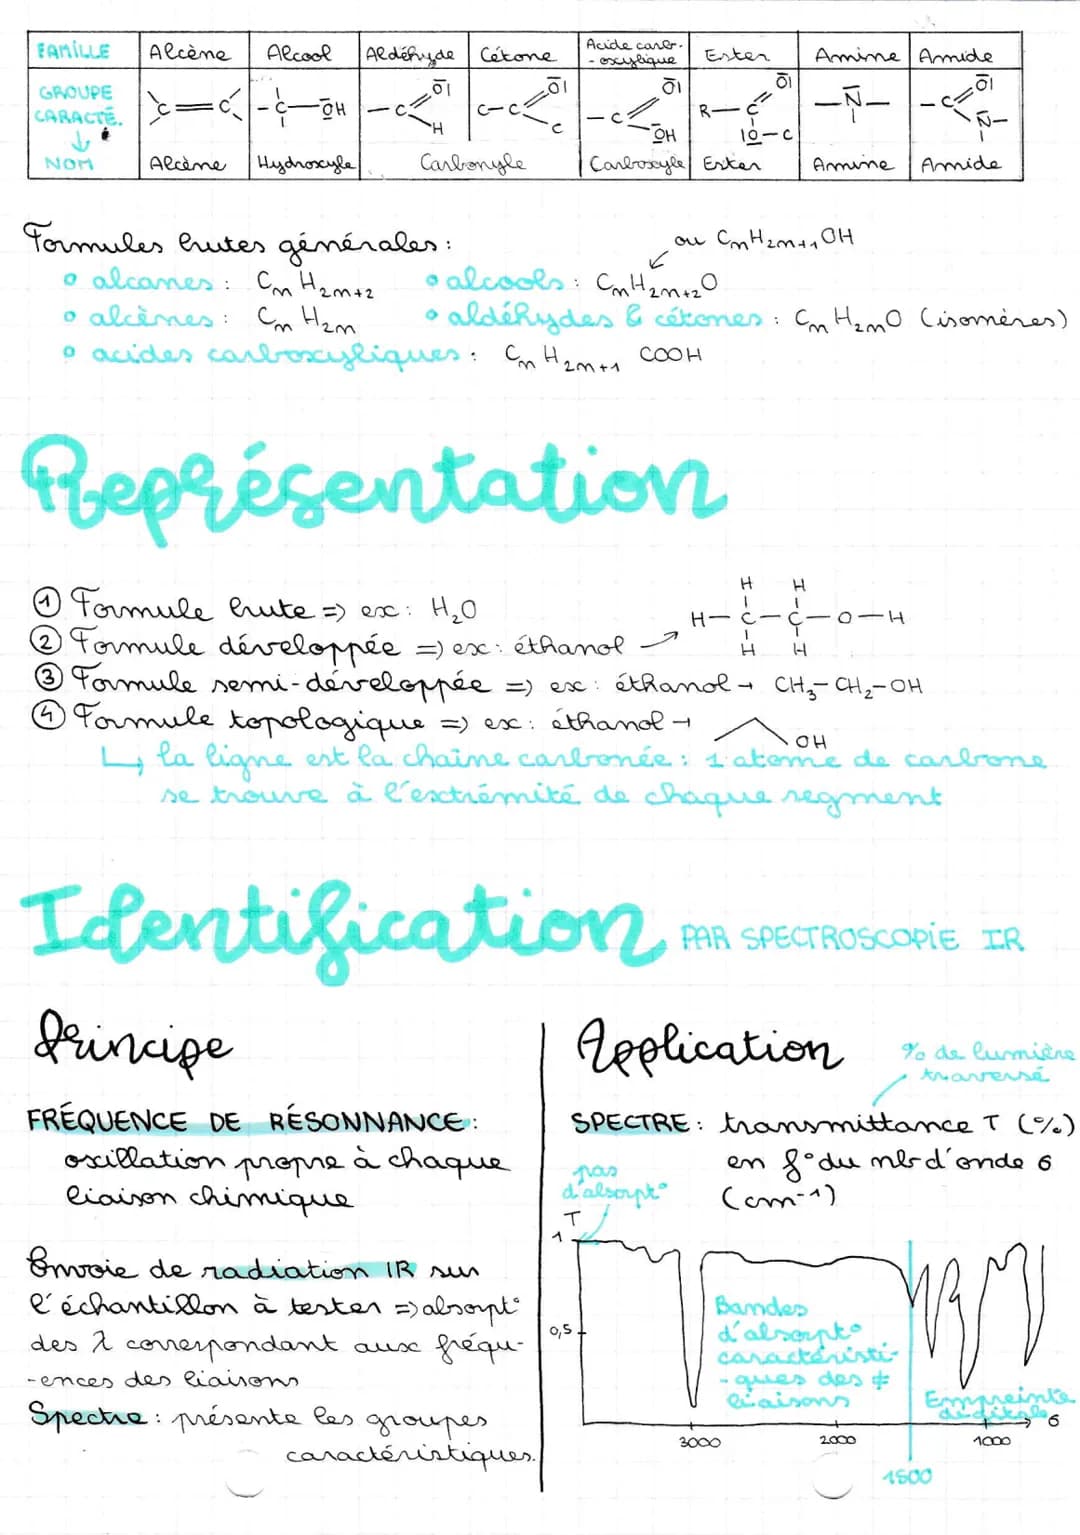 FAMILLE Alcène Alcool Aldéhyde Cétone Acide carb.-oxylique Ester Amine Amide
GROUPE CARACTÉ.
C=C -C-OH -C O H C-C O C -C O OH R-C O O-C -N- -C O N-
NOM Alcène Hydroxyle Carbonyle Carboxyle Ester Amine Amide
Formules brutes générales :
ou CnH2n+1OH
• alcanes : CnH2n+2 • alcools : CnH2n+2O
• alcènes : CnH2n • aldéhydes & cétones : CnH2nO (isomères)
• acides carboxyliques : CnH2n+1 COOH
Représentation
① Formule brute => ex : H₂O
② Formule développée => ex : éthanol
H H
H-C-C-O-H
H H
③ Formule semi-développée => ex : éthanol → CH₃-CH₂-OH
④ Formule topologique => ex : éthanol → OH
↳ la ligne est la chaîne carbonée : 1 atome de carbone
se trouve à l'extrémité de chaque segment
Identification PAR SPECTROSCOPIE IR
Principe
FRÉQUENCE DE RÉSONNANCE :
oscillation propre à chaque
liaison chimique
Envoie de radiation IR sur
l'échantillon à tester => absorpt°
des λ correspondant aux fréqu-
-ences des liaisons
Spectre : présente les groupes
caractéristiques.
Application
% de lumière
traversé
SPECTRE : transmittance T (%)
en f° du nbr d'onde σ
(cm⁻¹)
pas
d'absorpt°
T
1
0,5
Bandes
d'absorpt°
caractéristi-
-ques des ≠
liaisons
Empreinte
digitale
σ
3000
2000
1000
1500